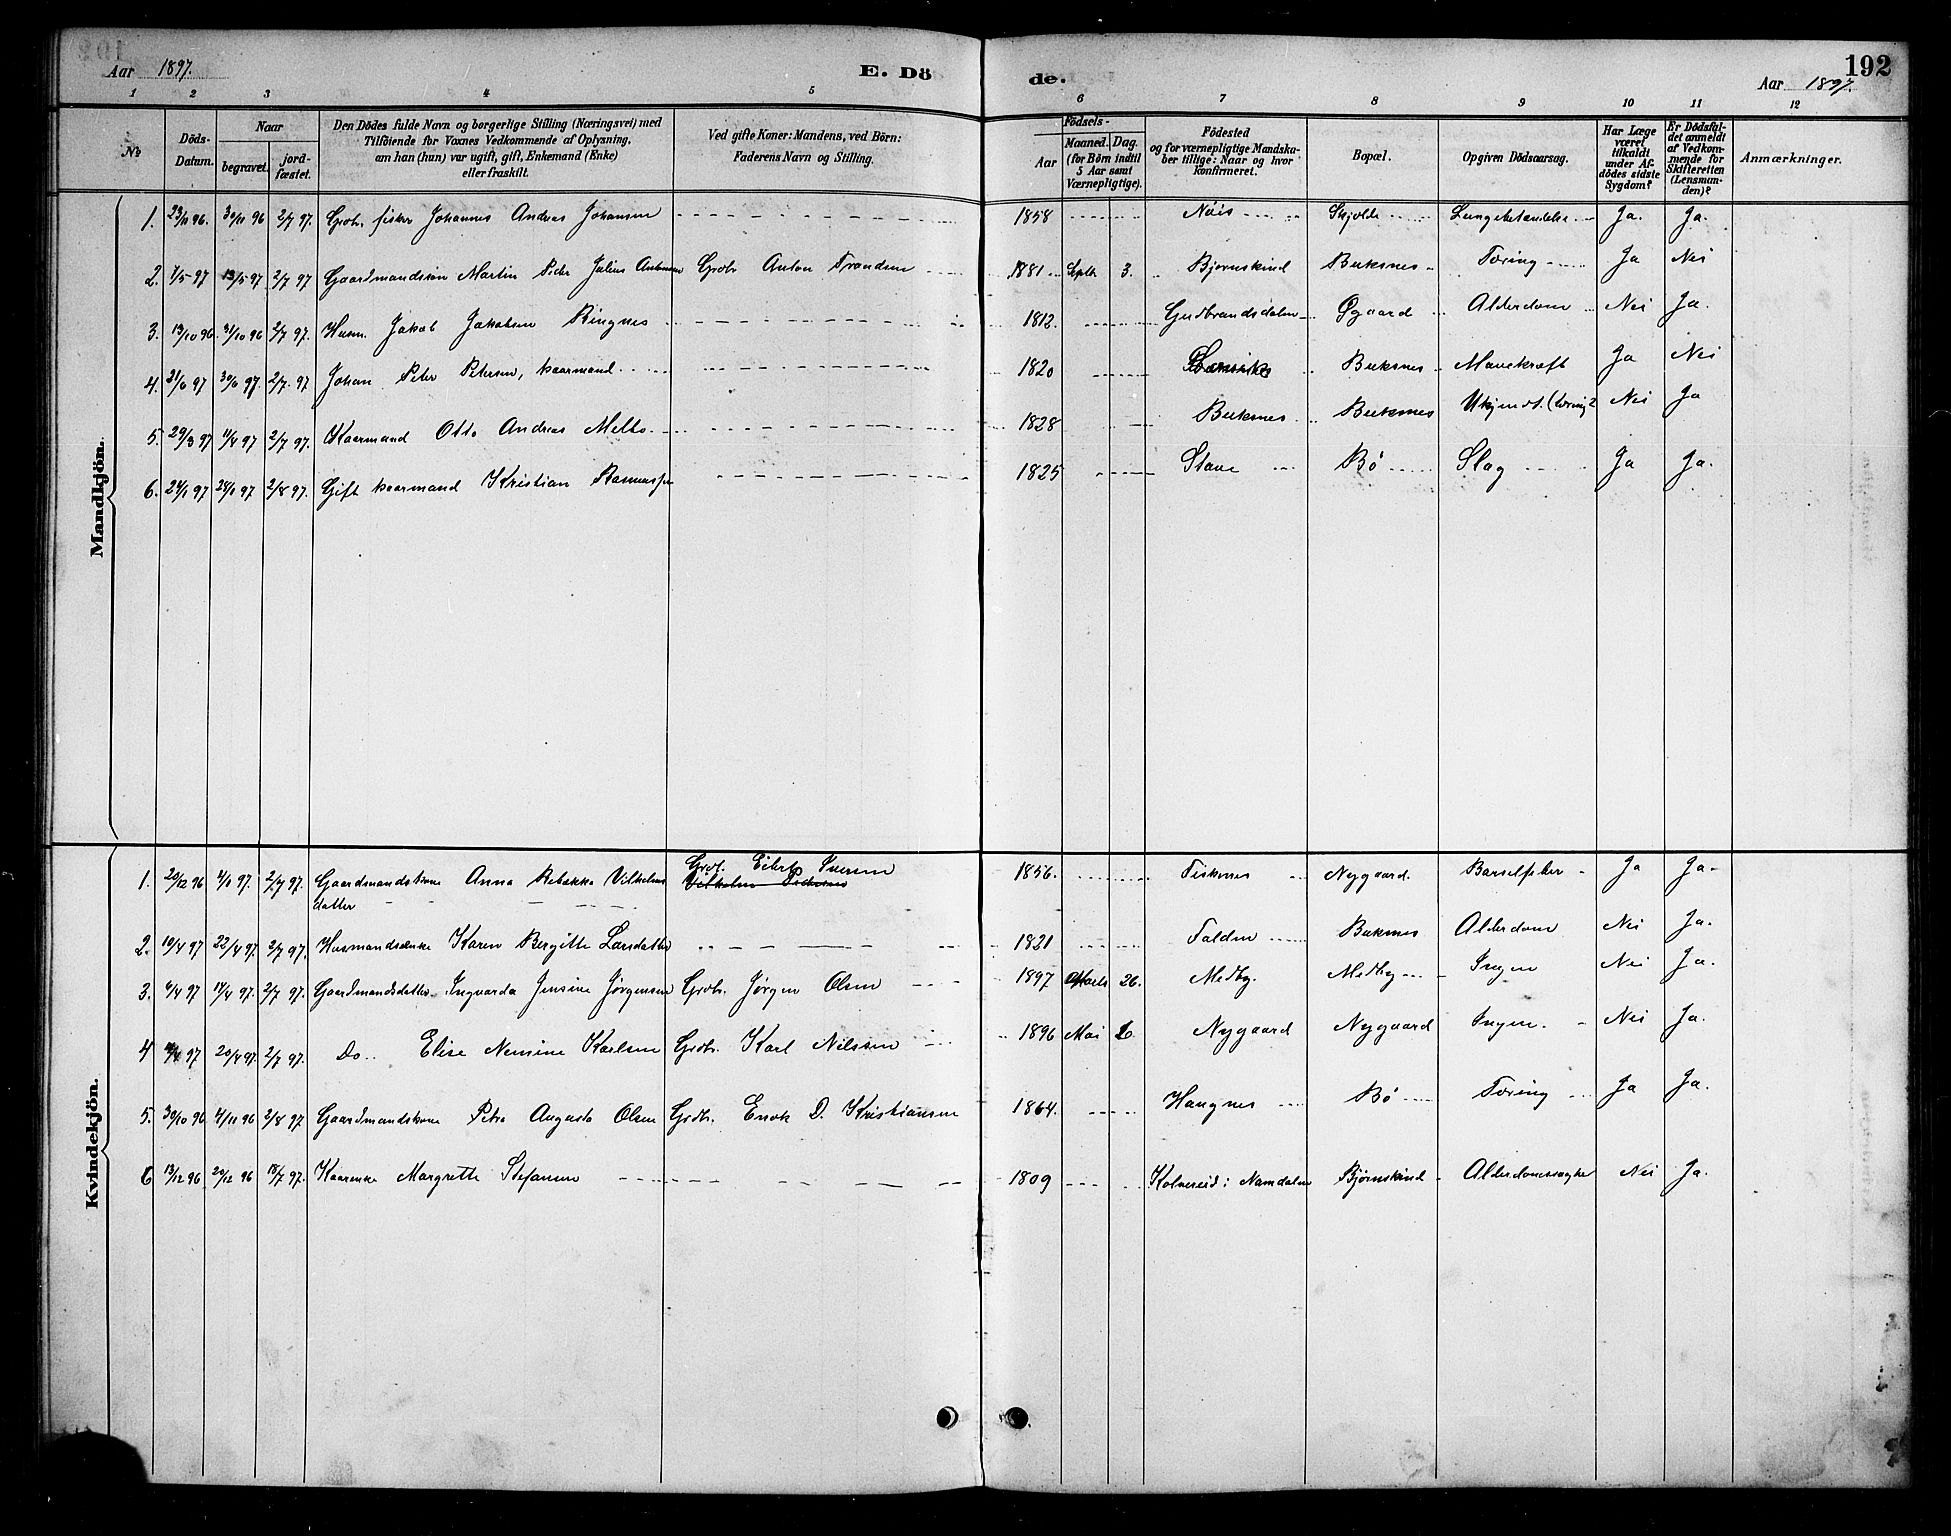 Aar 1897. E. Dö de. Aar 1897. 192
1 2 3 4 5 6 7 8 9 10 11 12
No
Döds-Datum.
Naar
begravet. jord-fæstet.
Den Dödes fulde Navn og borgerlige Stilling (Næringsvei) med
Tilföiende for Voxnes Vedkommende af Oplysning,
om han (hun) var ugift, gift, Enkemand (Enke)
eller fraskilt.
Ved gifte Koner: Mandens, ved Börn:
Faderens Navn og Stilling.
Födsels-
Aar Maaned. Dag.
(for Börn indtil
5 Aar samt
Værnepligtige).
Födested
og for værnepligtige Mandska-
ber tillige: Naar og hvor
konfirmeret.
Bopæl.
Opgiven Dödsaarsag.
Har Læge
været
tilkaldt
under Af-
dödes sidste
Sygdom?
Er Dödsfal-
det anmeldt
af Vedkom-
mende for
Skifteretten
(Lensman-
den)?
Anmærkninger.
Mandkjön.
1. 23/11 96. 30/11 96 2/7 97. Grdbr. fisker Johannes Andreas Johansen 1858 Nöis Skjolde Lungebetændelse Ja. Ja.
2. 7/5 97 13/5 97 2/7 97 Gaardmandssön Martin Peder Julius Antonsen Grdbr Anton Trondsen 1881 Septb 3. Bjørnskind Buksnes Tæring Ja Nei
3. 13/10 96. 31/10 96 2/7 97. Husm. Jakob Jakobsen Ringnes 1812. Gudbrandsdalen Øgaard Alderdom Nei Ja.
4. 21/6 97 30/6 97. 2/7. 97 Johan Peter Petersen, kaarmand 1820 Buksnes Mavekræft Ja Nei
5. 29/3 97 11/4 97 2/7 97. Kaarmand Otto Andreas Melbo 1828 Buksnes Buksnes Ukjendt. (tæring? Nei Ja
6. 24/1 97 28/1 97 2/8 97. Gift kaarmand Kristian Rasmussen 1825 Stave Bö Slag Ja Ja.
Kvindekjön.
1. 20/12 96 4/1 97. 2/7 97. Gaardmandskone Anna Rebekka Vilhelms Grdb. Eilert Iversen 1856. Fiskenes Nygaard. Barselfeber Ja Ja
datter Vilhelm Pedersen
2. 10/4 97 22/4 97. 2/7 97. Husmandsenke Karen Bergitte Larsdatter 1821 Folden Buksnes Alderdom Nei Ja.
3. 6/4 97 14/4 97. 2/7 97. Gaardmandsdatter Ingvarda Jensine Jørgensen Grdb. Jørgen Olsen 1897 Marts 26. Medby. Medby Ingen Nei Ja.
4 97 20/4 97. 2/7 97. Do. Elise Nensine Karlsen Grdb. Karl Nilssen 1896 Mai Nygaard Nygaard Ingen. Nei Ja.
5. 30/10 96 4/11 96 2/8 97 Gaardmandskone Petra Augusta Olsen Grdb. Enok D. Kristiansen 1864. Haugnes Bö Tæring Ja Ja.
6 13/12 96 20/12 96 18/7 97. Kaarenke Margrethe Stefansen 1809 Kolvereid i Namdalen Bjørnskind Alderdomssvaghed Nei Ja.